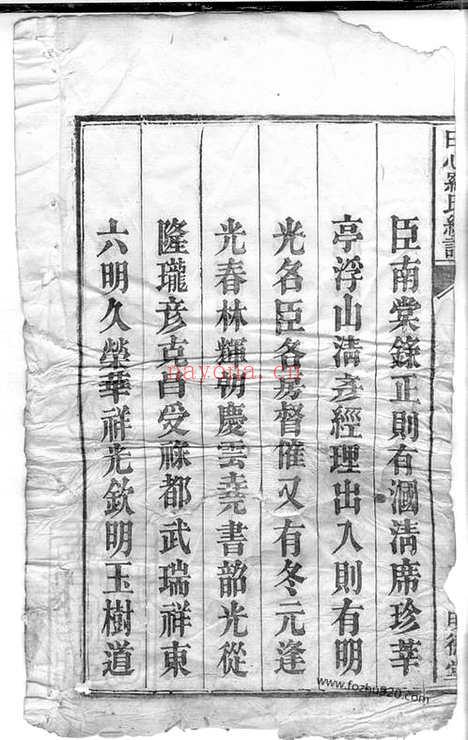 田心羅氏續譜
臣南棠錄正則有涸淸席珍華
亭浮山淸彥經理出入則有明
光名臣各房督催又有冬元逢
光春林輝朝慶雲堯書韶光從
隆瓏彥克昌受祿都武瑞祥東
六明久榮華祥光欽明玉樹道
nayona.cn
www.fozhu920.com